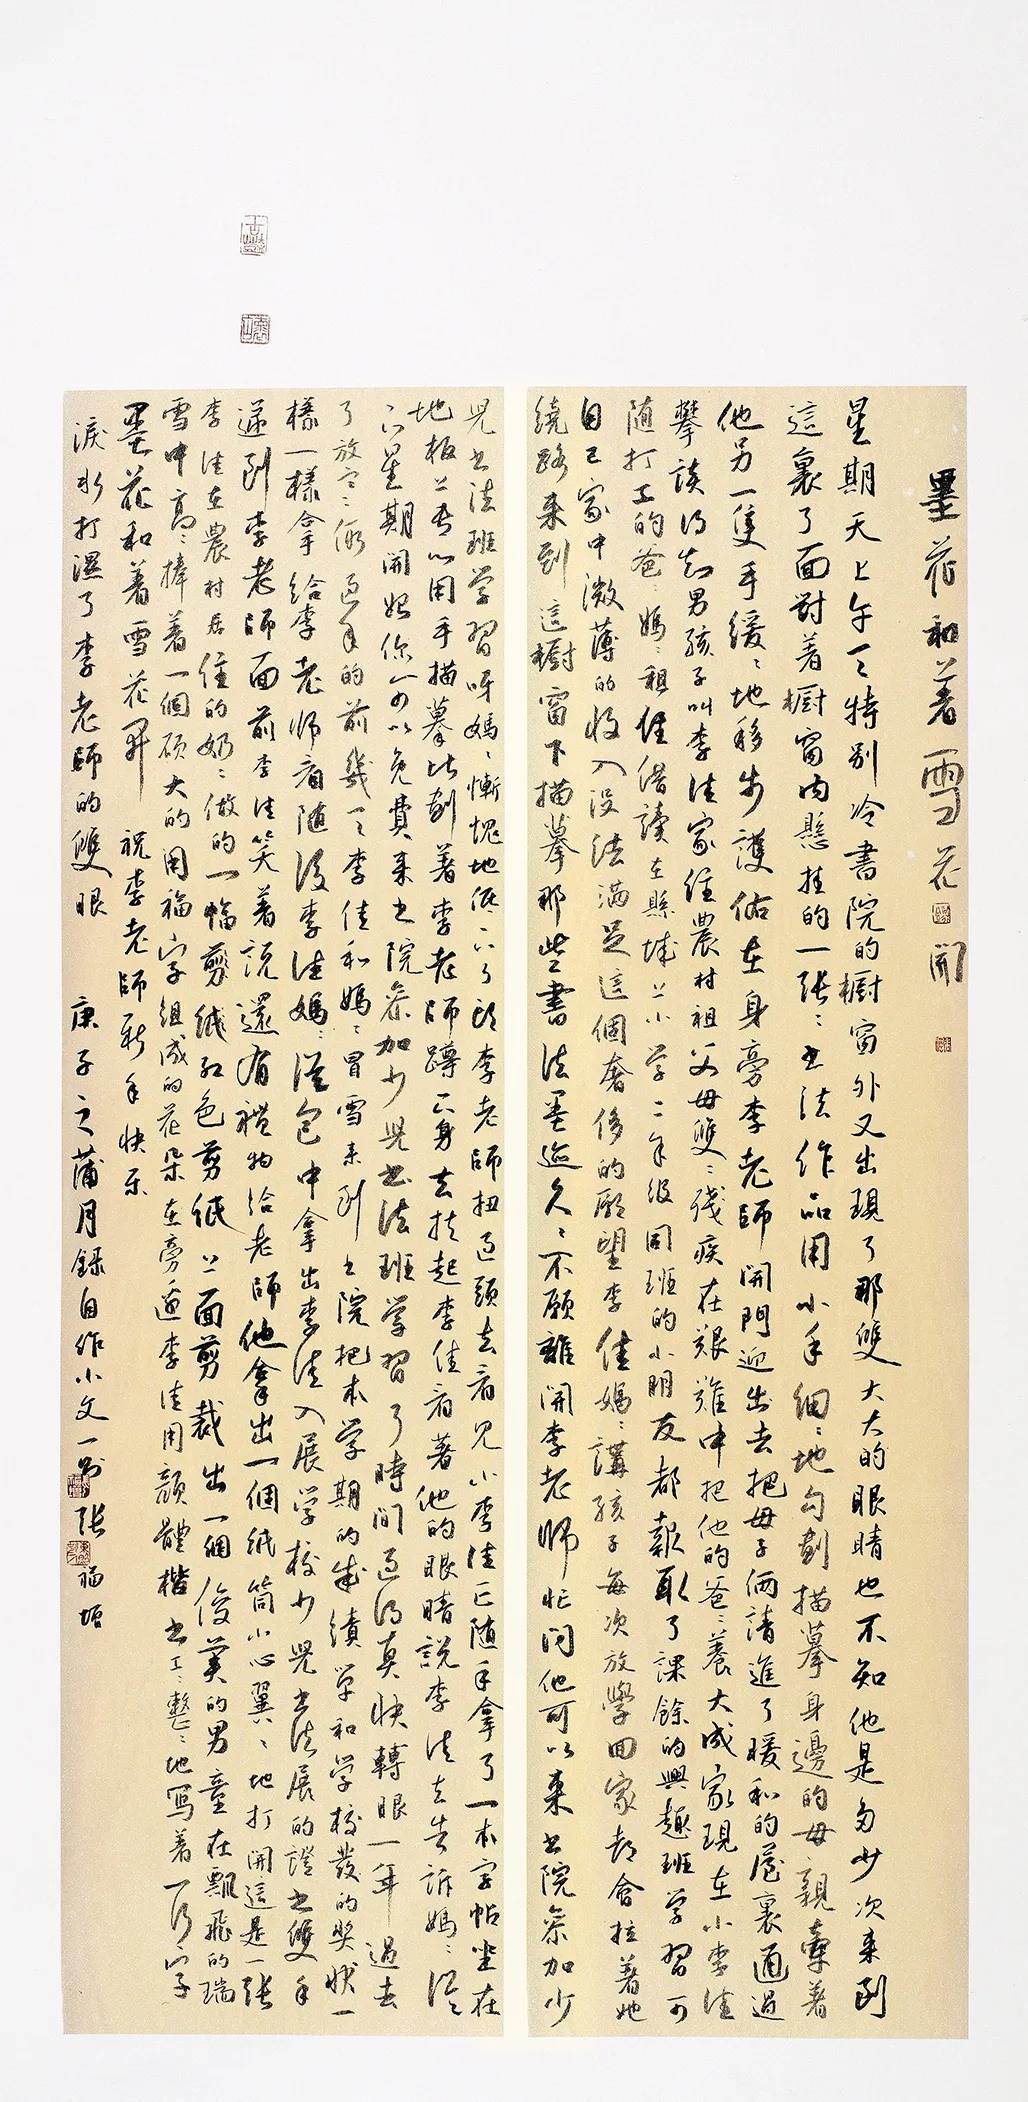 墨花和著雪花開
星期天上午天特别冷書院的橱窗外又出現了那雙大大的眼睛也不知他是多少次来到
這裏了面對著橱窗内懸挂的一張張书法作品用小手细细地勾劃描摹身邊的母親牽著
他另一隻手緩緩地移步護佑在身旁李老師開門迎出去把母子倆請進了暖和的屋裏通過
攀談得知男孩子叫李佳家住農村祖父母雙雙残疾在艱難中把他的爸爸養大成家現在小李佳
随打工的爸爸媽媽租住借讀在縣城上小學二年级同班的小朋友都報取了課餘的興趣班学習可
自己家中微薄的收入没法满足這個奢侈的願望李佳媽媽講孩子每次放學回家都會拉著她
绕路来到這橱窗下描摹那些書法墨迹久久不願離開李老师忙问他可以来书院参加少
兒书法班学習呀媽媽慚愧地低下了頭李老師扭过頭去看見小李佳已随手拿了一本字帖坐在
地板上专心用手描摹比劃著李老師蹲下身去扶起李佳看著他的眼睛説李佳去告訴媽媽從
下星期開始你可以免費来书院参加少兒书法班学習了時间过得真快轉眼一年過去
了放寒假过年的前幾天李佳和媽媽冒雪来到书院把本学期的成績单和学校發的奖状一
樣一樣拿给李老师看随後李佳媽媽從包中拿出李佳入展学校少兒书法展的證书雙手
递到李老師面前李佳笑著説還有禮物给老師他拿出一個纸筒小心翼翼地打開這是一張
李佳在農村居住的奶奶做的一幅剪纸红色剪纸上面剪裁出一個俊美的男童在飄飛的瑞
雪中高高捧着一個碩大的用福字组成的花朵在旁邊李佳用顔體楷书工工整整地寫着一行字
墨花和著雪花開 祝李老師新年快乐
淚水打濕了李老師的雙眼 庚子之蒲月録自作小文一则 張福堦